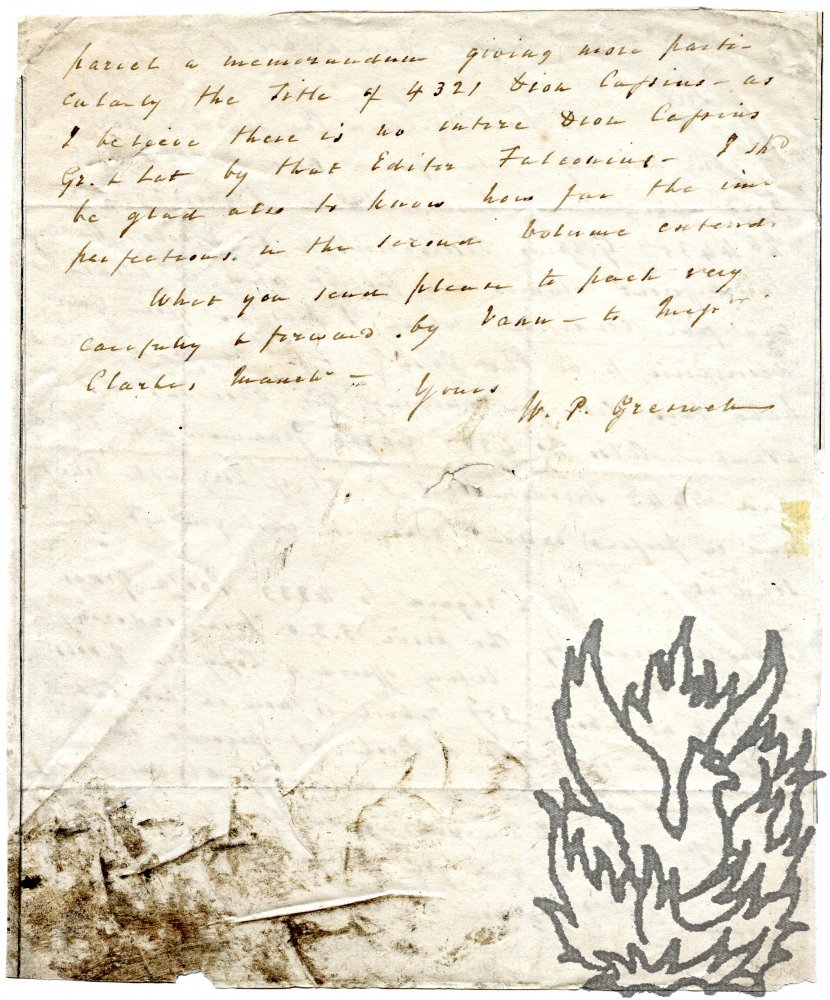 parcel a memorandum giving more parti-
cularly the Title of 4321 Dion Cassius - as
I believe there is no intire Dion Cassius
Gr. & Lat by that Editor Falconius - I shd
be glad also to know how far the im-
perfections in the second Volume extend.
What you send please to pack very
carefully & forward by Vann - to Messrs
Clarkes, Manchr -
Yours
W. P. Greswell